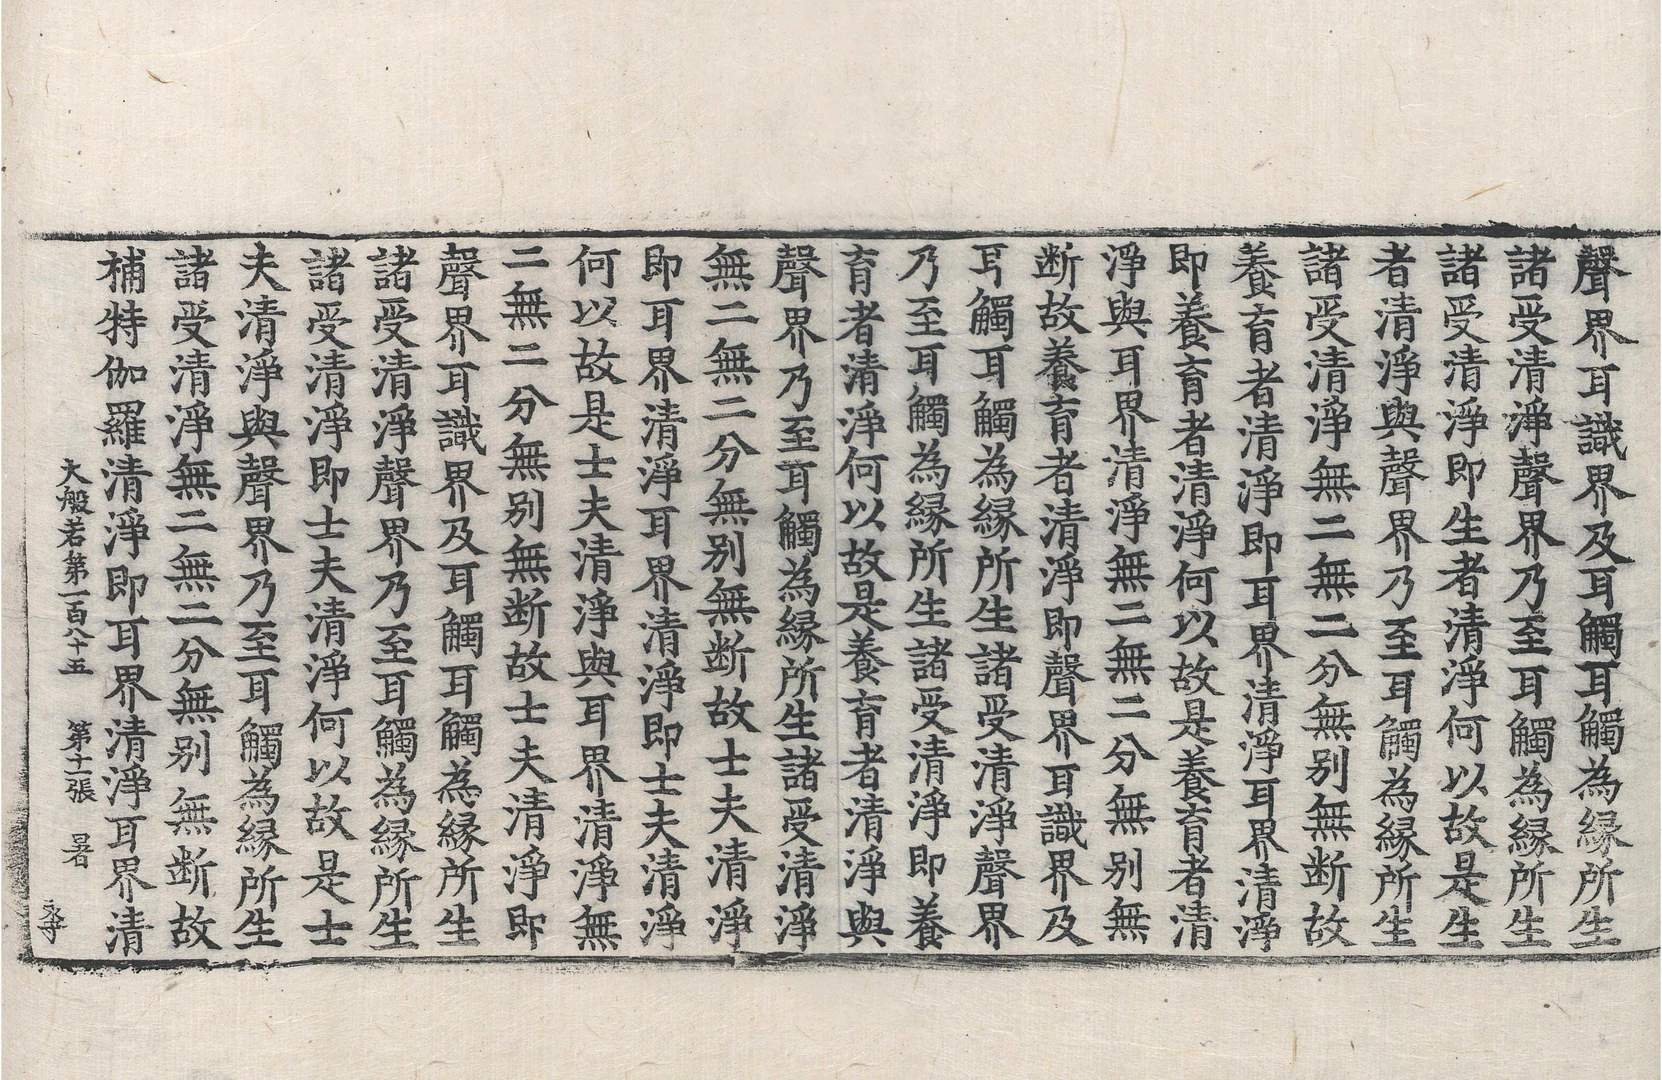 聲界耳識界及耳觸耳觸為縁所生
諸受清淨聲界乃至耳觸為縁所生
諸受清淨即生者清淨何以故是生
者清淨與聲界乃至耳觸為縁所生
諸受清淨無二無二分無別無断故
養育者清淨即耳界清淨耳界清淨
即養育者清淨何以故是養育者清
淨與耳界清淨無二無二分無別無
断故養育者清淨即聲界耳識界及
耳觸耳觸為縁所生諸受清淨聲界
乃至耳觸為縁所生諸受清淨即養
育者清淨何以故是養育者清淨與
聲界乃至耳觸為縁所生諸受清淨
無二無二分無別無断故士夫清淨
即耳界清淨耳界清淨即士夫清淨
何以故是士夫清淨與耳界清淨無
二無二分無別無断故士夫清淨即
聲界耳識界及耳觸耳觸為縁所生
諸受清淨聲界乃至耳觸為縁所生
諸受清淨即士夫清淨何以故是士
夫清淨與聲界乃至耳觸為縁所生
諸受清淨無二無二分無別無断故
補特伽羅清淨即耳界清淨耳界清
大般若第一百八十五 第十一張 暑